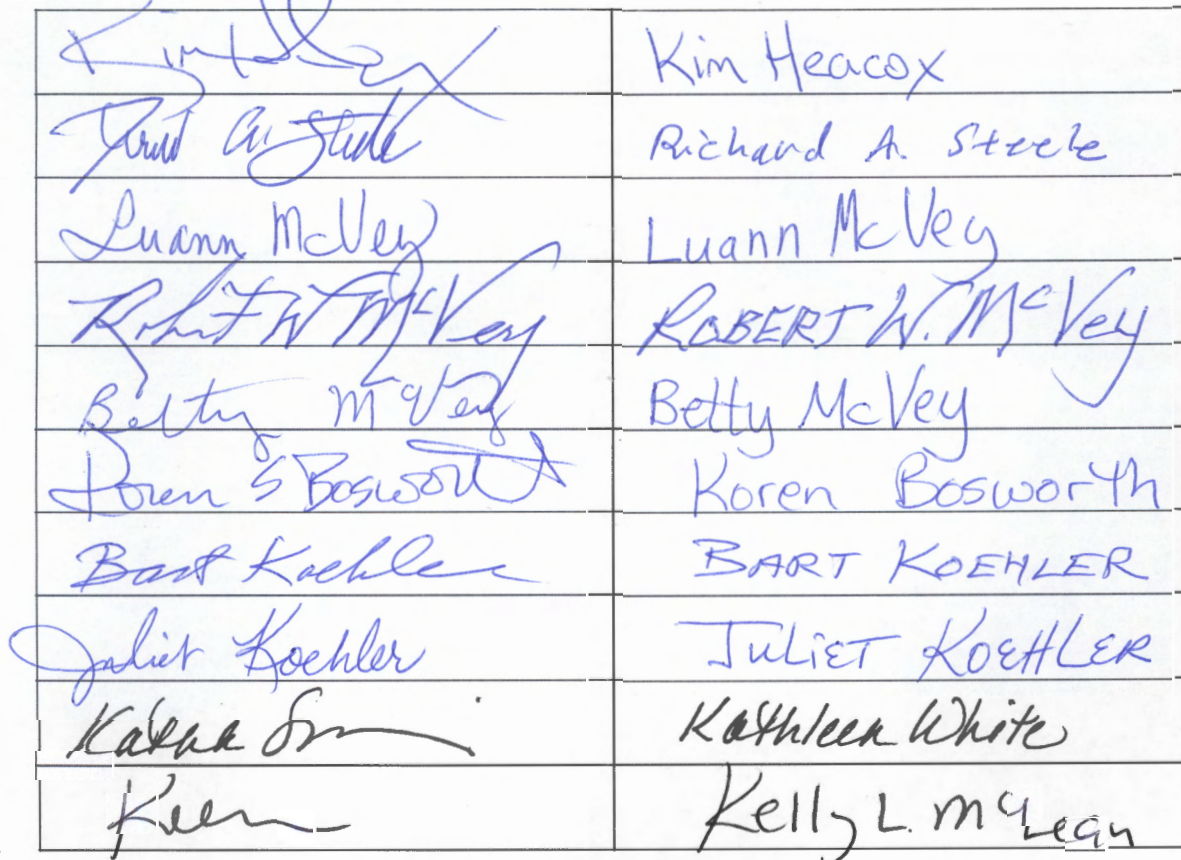 Kim Heacox
Richard A. Steele
Luann McVey Luann McVey
Robert W McVey ROBERT W. McVey
Betty McVey Betty McVey
Koren S Bosworth Koren Bosworth
Bart Koehler BART KOEHLER
Juliet Koehler JULIET KOEHLER
Kathleen White
Kelly L. McLean